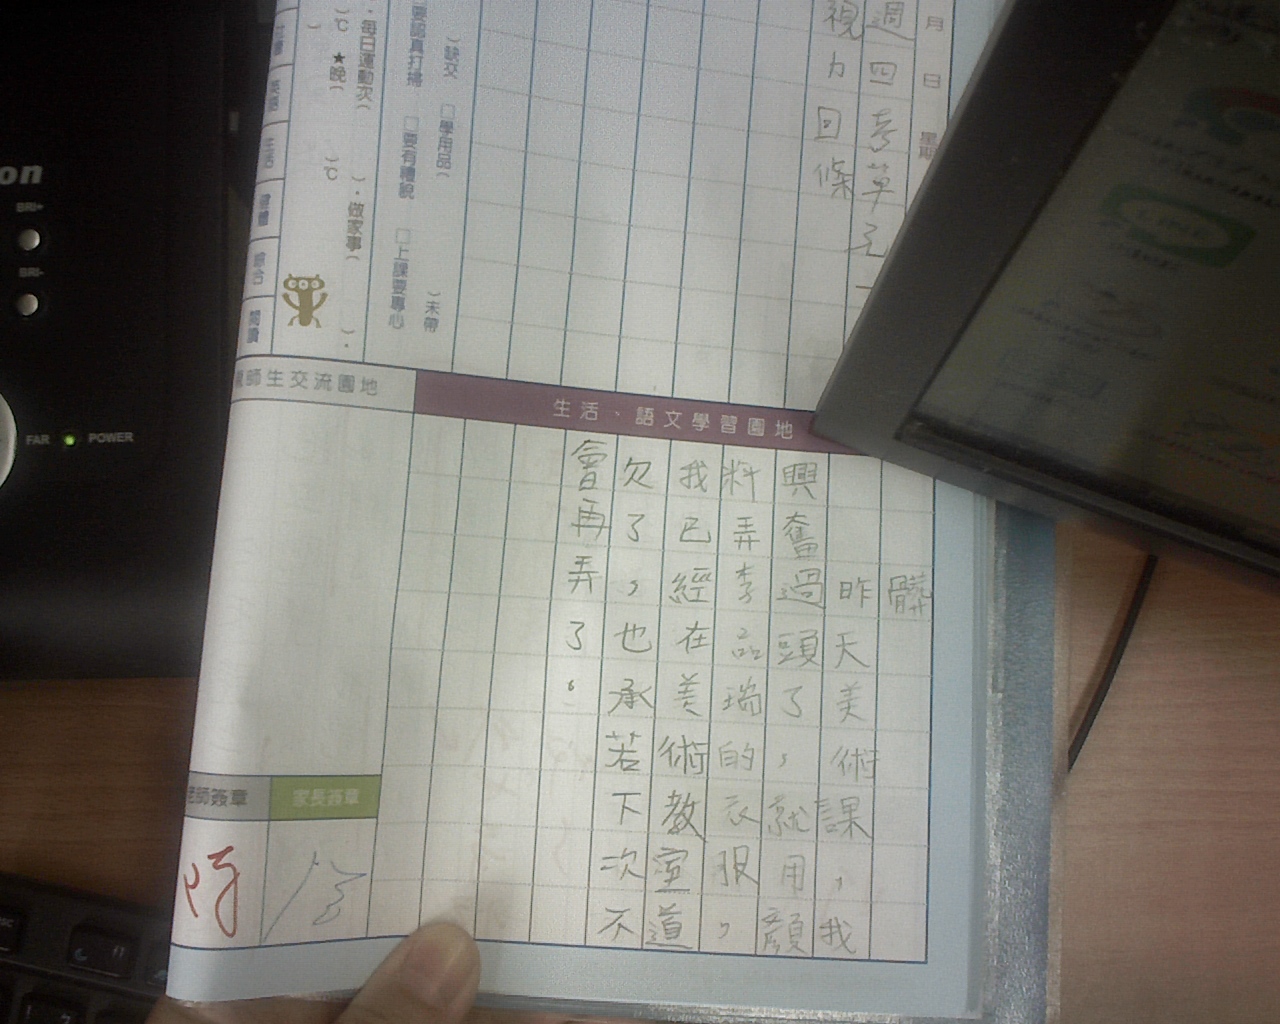 月 日 星期
週四考單元一
視力回條
)缺交 □學用品( )未帶
要認真打掃 □要有禮貌 □上課要專心
・每日運動次( )・做家事( )・
)℃ ★晚( )℃
英語 生活 健體 綜合 閱讀
生活、語文學習園地
髒
昨天美術課,我
興奮過頭了,就用顏
料弄李品瑞的衣服,
我已經在美術教室道
欠了,也承若下次不
會再弄了。
師生交流園地
家長簽章
老師簽章
on
BRI+
BRI-
FAR
POWER